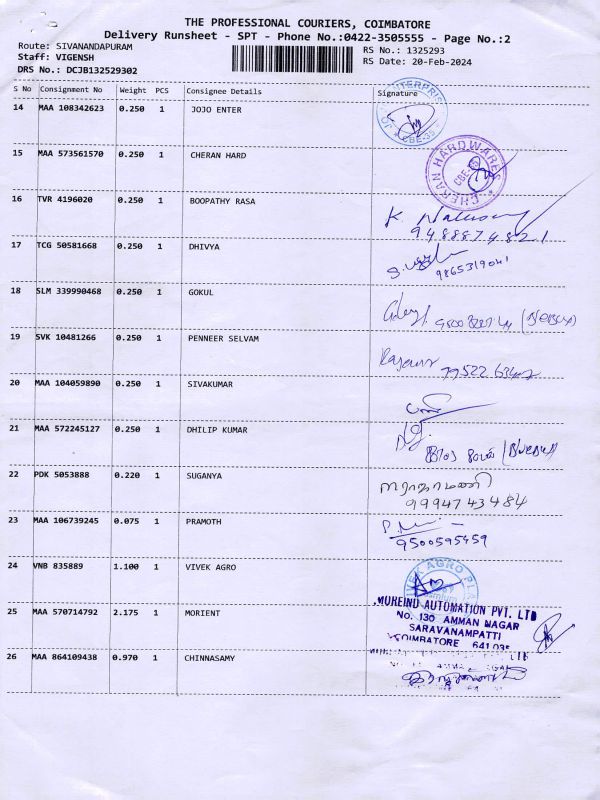 THE PROFESSIONAL COURIERS, COIMBATORE
Delivery Runsheet - SPT - Phone No.:0422-3505555 - Page No.:2
Route: SIVANANDAPURAM
RS No.: 1325293
Staff: VIGENSH
RS Date: 20-Feb-2024
DRS No.: DCJB132529302
S No Consignment No Weight PCS Consignee Details Signature
14 MAA 108342623 0.250 1 JOJO ENTER
15 MAA 573561570 0.250 1 CHERAN HARD
CHERAN HARDWARES
16 TVR 4196020 0.250 1 BOOPATHY RASA
9488874821
17 TCG 50581668 0.250 1 DHIVYA
9865319041
18 SLM 339990468 0.250 1 GOKUL
19 SVK 10481266 0.250 1 PENNEER SELVAM
20 MAA 104059890 0.250 1 SIVAKUMAR
21 MAA 572245127 0.250 1 DHILIP KUMAR
22 PDK 5053888 0.220 1 SUGANYA
9994743484
23 MAA 106739245 0.075 1 PRAMOTH
9500595459
24 VNB 835889 1.100 1 VIVEK AGRO
25 MAA 570714792 2.175 1 MORIENT
AUTOMATION PVT. LTD
No. 130 AMMAN NAGAR
SARAVANAMPATTI
COIMBATORE 641 035
26 MAA 864109438 0.970 1 CHINNASAMY